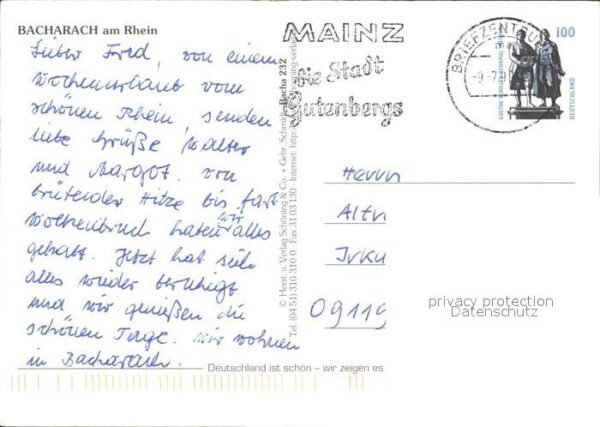 BACHARACH am Rhein
Lieber Fred, von einem
Wochenurlaub vom
schönen Rhein, senden
liebe Grüße Walter
und Margot. Von
brütender Hitze bis fast
Wolkenbruch hatten wir alles
gehabt. Jetzt hat sich
alles wieder beruhigt
und wir genießen die
schönen Tage. Wir wohnen
in Bacharach.
Deutschland ist schön – wir zeigen es
© Herst. u. Verlag Schöning & Co. + Gebr. Schmidt
Bacha 232
Tel. (04 51) 310 310 0 · Fax 31 03 130 · Internet:
MAINZ
die Stadt
Gutenbergs
BRIEFZENTRUM
100
DEUTSCHLAND
Herrn
09119
privacy protection
Datenschutz